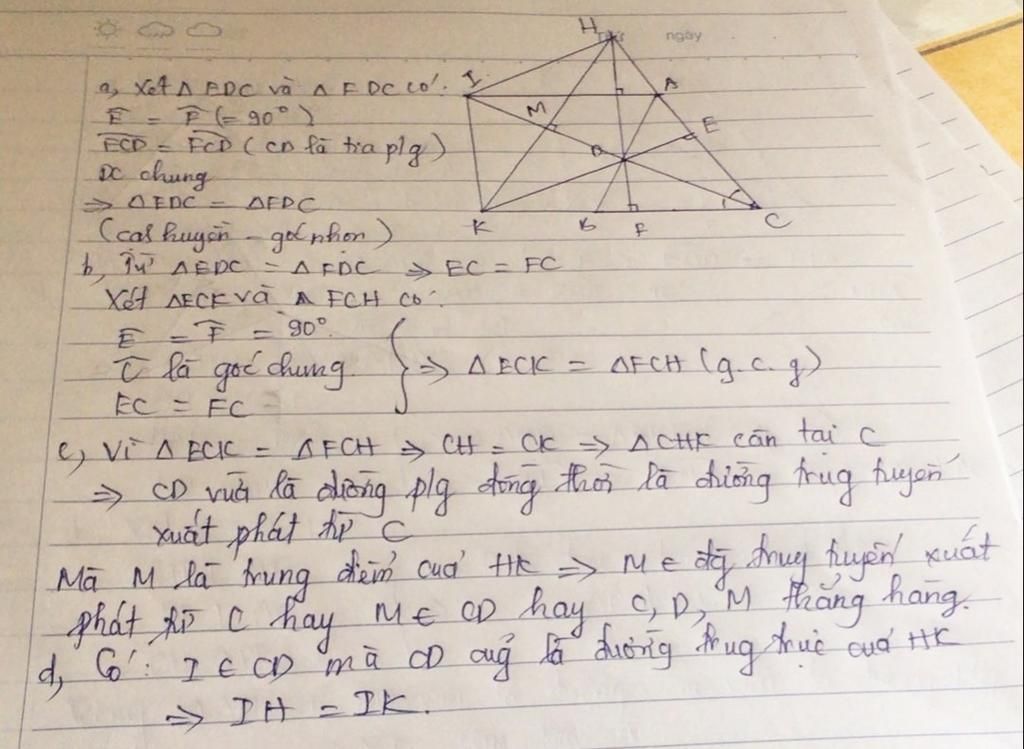 ngày
H
I
A
M
E
D
K
B
F
C
1
a, Xét Δ EDC và Δ FDC có:
Ê = F̂ (= 90°)
ECD = FCD ( CD là tia p/g )
DC chung
⇒ Δ EDC = Δ FDC
(cah huyền - góc nhọn)
b, Từ Δ EDC = Δ FDC ⇒ EC = FC
Xét Δ ECK và Δ FCH có:
Ê = F̂ = 90°.
Ĉ là góc chung
EC = FC
⇒ Δ ECK = Δ FCH (g.c.g)
c, Vì Δ ECK = Δ FCH ⇒ CH = CK ⇒ Δ CHK cân tại C
⇒ CD vừa là đường p/g đồng thời là đường trug tuyến
xuất phát từ C
Mà M là trung điểm của HK ⇒ M ∈ đg truy tuyến xuất
phát từ C hay M ∈ CD hay C, D, M thẳng hàng.
d, Có: I ∈ CD mà CD cug là đường trug trực của HK
⇒ IH = IK.